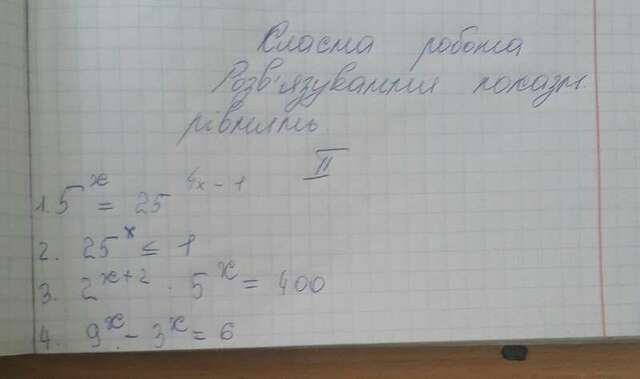 Класна робота
Розв'язування показн.
рівнянь.
II
1. 5^x = 25^{4x-1}
2. 25^x ≤ 1
3. 2^{x+2} · 5^x = 400
4. 9^x - 3^x = 6